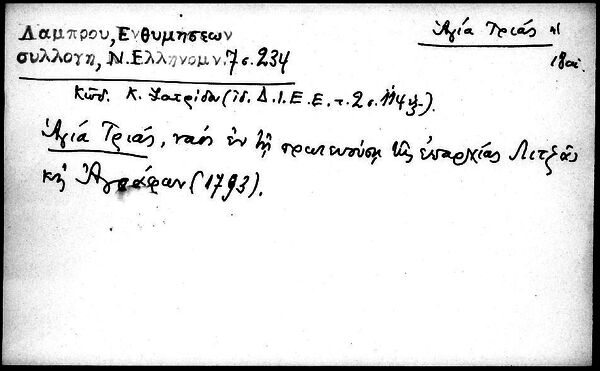 Λαμπρου, Ενθυμησεων
συλλογη, Ν. Ελληνομν. 7 σ. 234
Ἁγία Τριάς
18 αἰ.
Κῶδ. Κ. Σατρίδου (ἰδ. Δ.Ι.Ε.Ε. τ. 2 σ. 114
Ἁγία Τριάς, ναός ἐν τῇ πρωτευούσῃ τῆς ἐπαρχίας Λιτζᾶς
κὴ Ἀγράφων (1793).